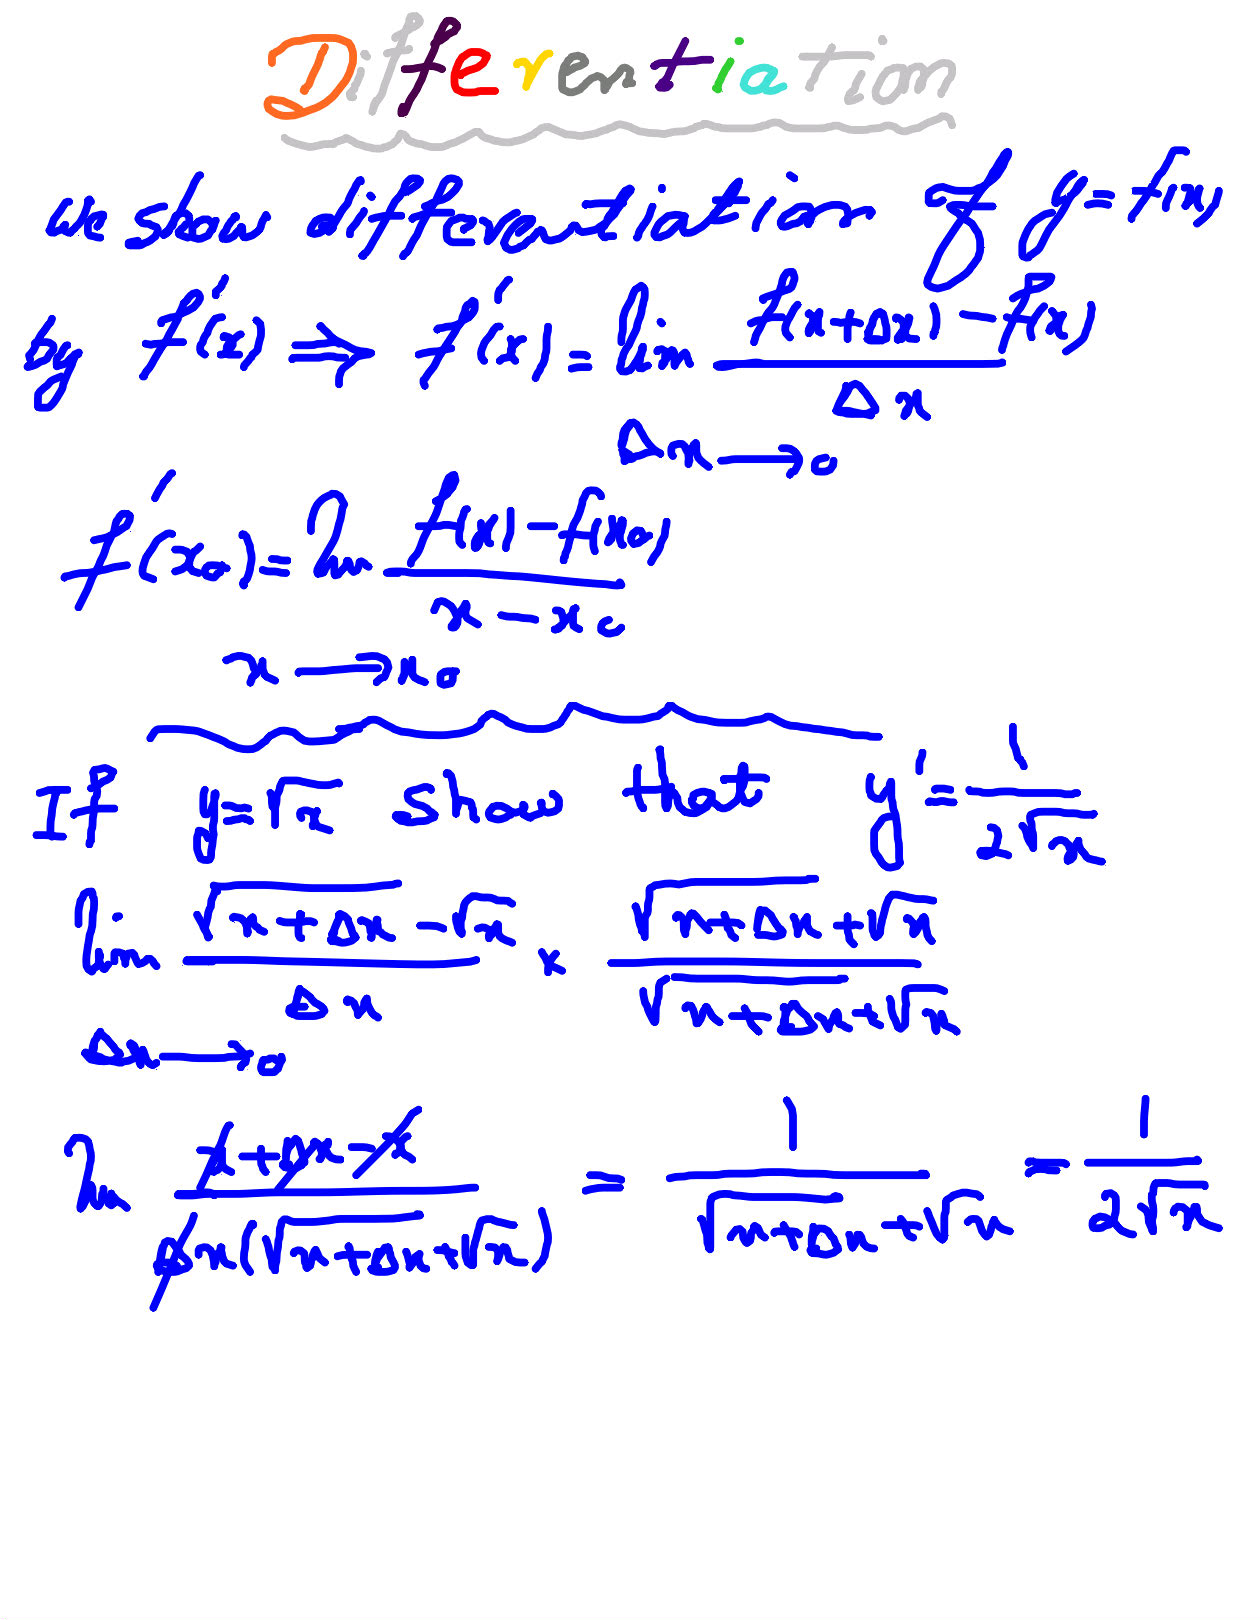 Differentiation
we show differentiation of y = f(x)
by f'(x) ⇒ f'(x) = lim f(x+Δx) - f(x) / Δx
Δx → 0
f'(x₀) = lim f(x) - f(x₀) / x - x₀
x → x₀
If y = √x show that y' = 1 / 2√x
lim √(x+Δx) - √x / Δx × √(x+Δx) + √x / √(x+Δx) + √x
Δx → 0
lim x + Δx - x / Δx(√(x+Δx) + √x) = 1 / √(x+Δx) + √x = 1 / 2√x